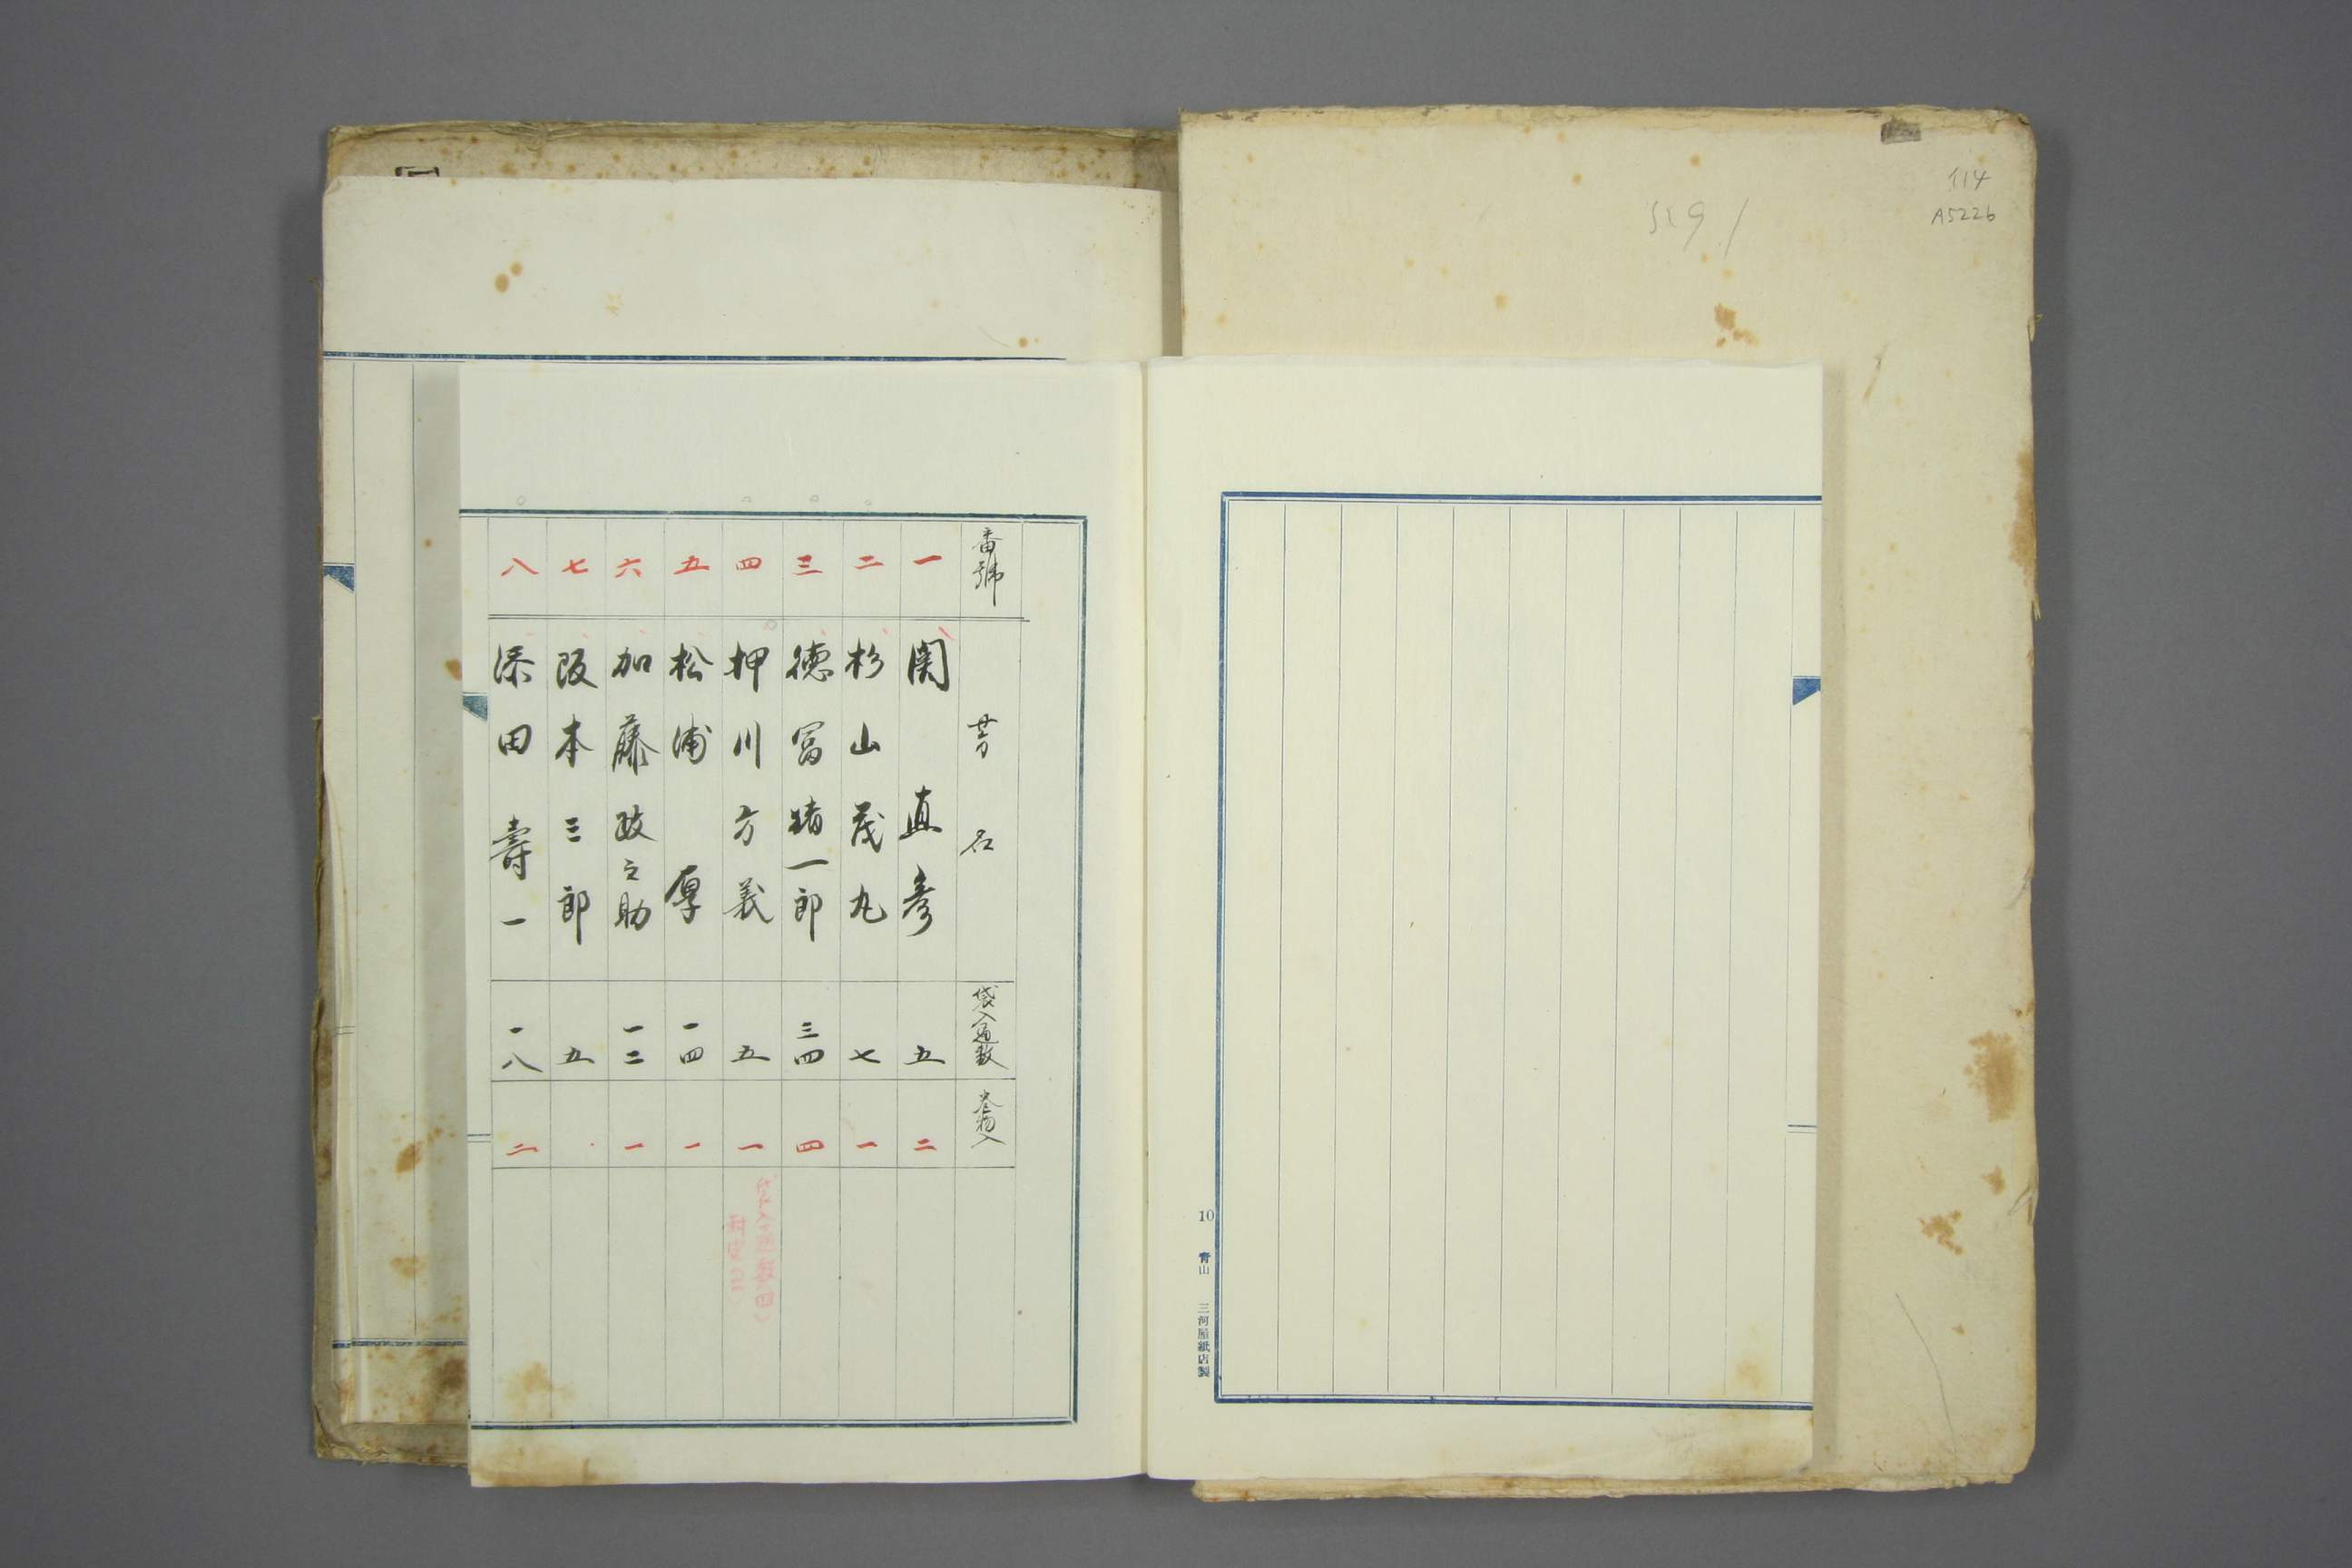 114
A5226
10 青山 三河屋紙店製
番號 芳名 袋入通数 巻物入
一 関直彦 五 二
二 杉山茂丸 七 一
三 徳富猪一郎 三四 四
四 押川方義 五 一
五 松浦厚 一四 一
六 加藤政之助 一二 一
七 阪本三郎 五
八 添田壽一 一八 二